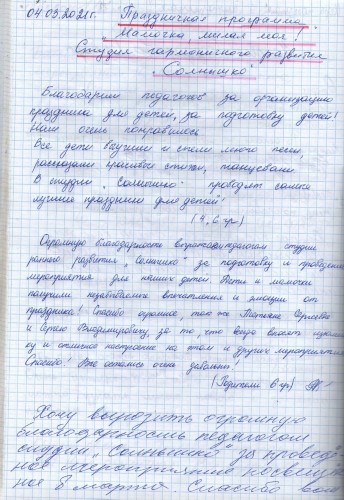 04 03.2021 г. Праздничная программа
"Мамочка милая моя!"
Студия гармоничного развития
"Солнышко"
Благодарим педагогов за организацию
праздника для детей, за подготовку детей!
Нам очень понравилось
Все дети выучили и спели много песен,
рассказали красивые стихи, танцевали
В студии "Солнышко" проводят самые
лучшие праздники для детей!
(4, 6 гр)
Огромную благодарность педагогам студии
раннего развития "Солнышко" за подготовку и проведение
мероприятия для наших детей. Дети и мамочки
получили незабываемые впечатления и эмоции от
праздника! Спасибо огромное, так же Татьяне Сергеевне
и Владимировичу, за то, что всегда вносят
ку и отличное настроение на этом и других мероприятиях
Спасибо! Все остались очень довольны!
(Родители 6 гр)
Хочу выразить огромную
благодарность педагогам
студии "Солнышко" за проведён-
ное мероприятие посвящён-
ное 8 марта Спасибо вам